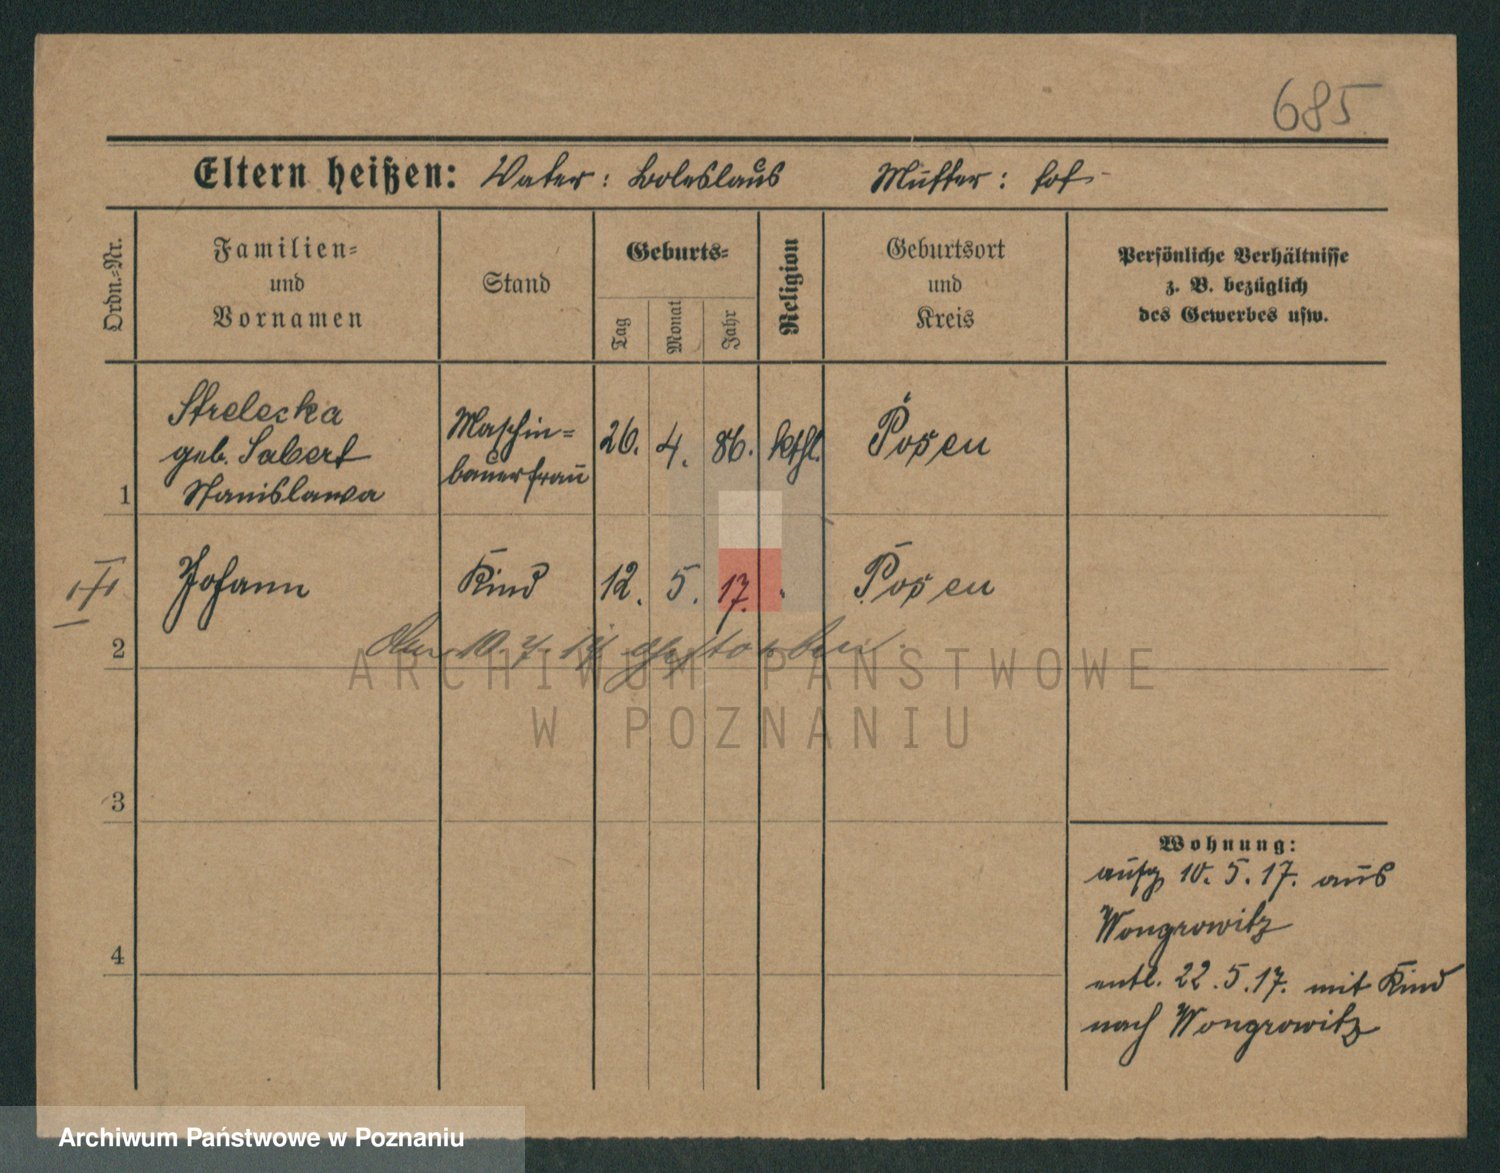 685
Eltern heißen: Vater: Boleslaus Mutter: tot
Ordn.-Nr.
Familien-
und
Vornamen
Stand
Geburts-
Tag
Monat
Jahr
Religion
Geburtsort
und
Kreis
Persönliche Verhältnisse
z. B. bezüglich
des Gewerbes usw.
1
Strelecka
geb. Sabert
Stanislawa
Maschin-
bauerfrau
26. 4. 86. kthl. Posen
2
Johann Kind 12. 5. 17. Posen
10. 7. 17 gestorben
ARCHIWUM PAŃSTWOWE
W POZNANIU
3
4
Wohnung:
aufg 10. 5. 17. aus
Wongrowitz
entl. 22. 5. 17. mit Kind
nach Wongrowitz
Archiwum Państwowe w Poznaniu